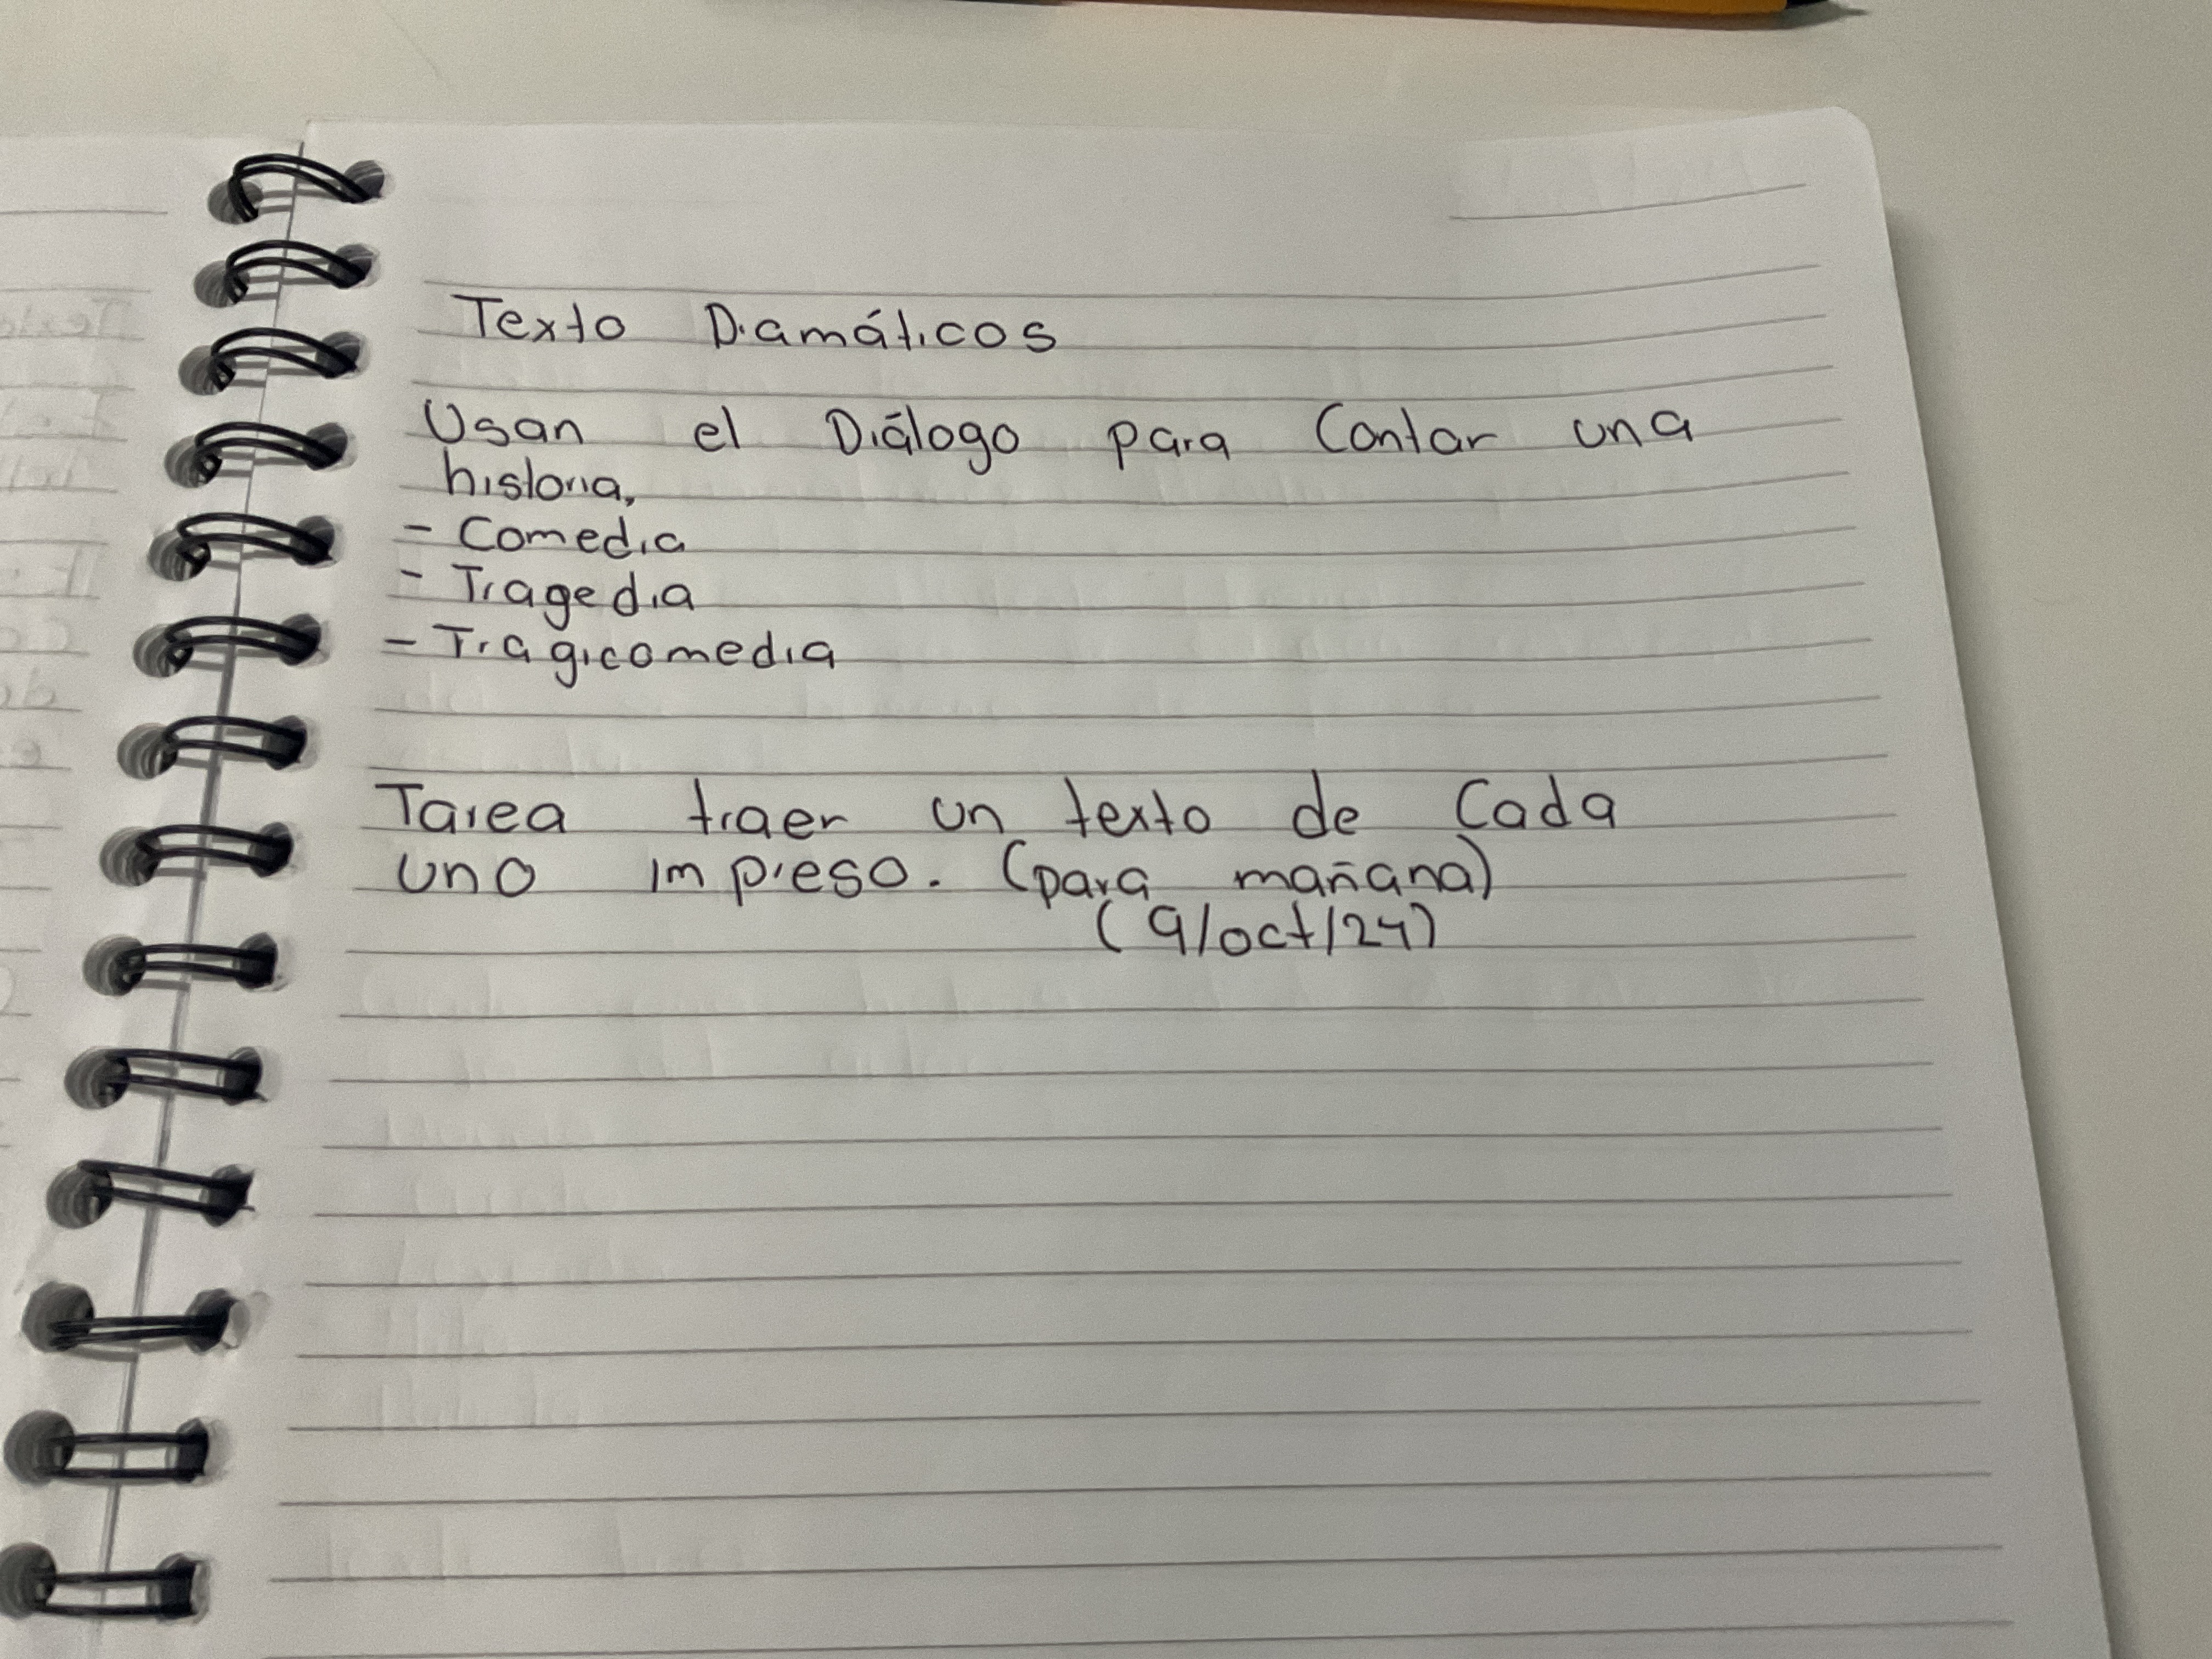 Texto Dramáticos
Usan el Diálogo para Contar una
historia,
- Comedia
- Tragedia
- Tragicomedia
Tarea traer un texto de Cada
uno impreso. (para mañana)
(9/oct/24)